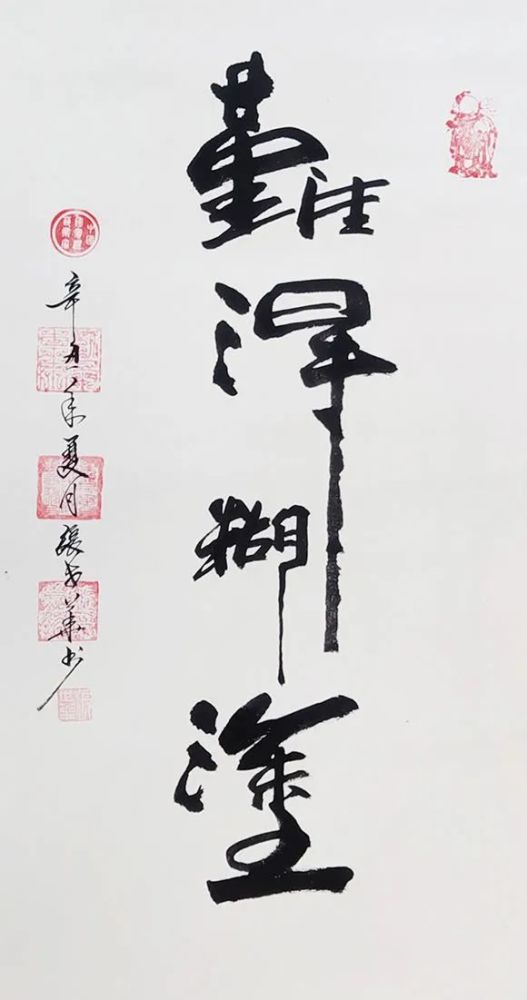 難得糊塗
辛丑年夏月張書華书